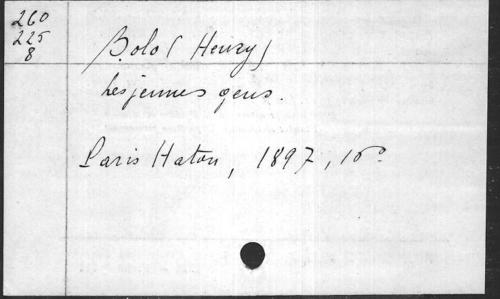 260
225
8
Bolo (Henry)
Les jeunes gens.
Paris Haton, 1897, 16°